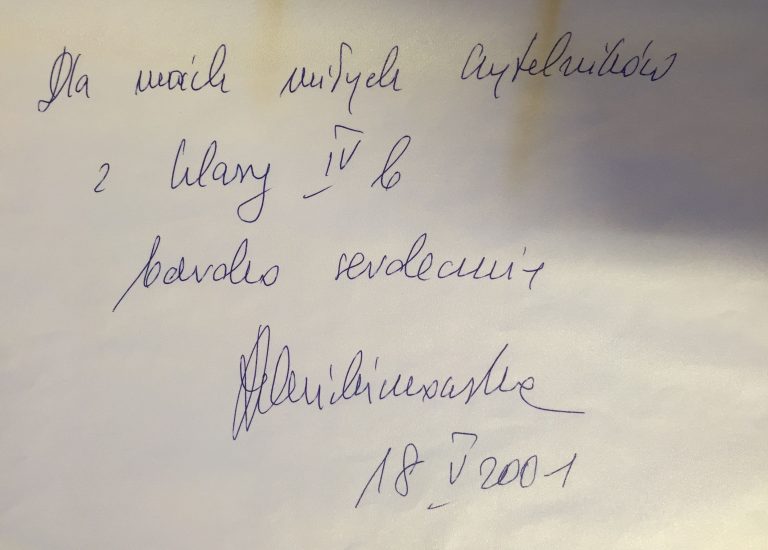 Dla moich miłych czytelników
z klasy IV b
bardzo serdecznie
18 V 2001